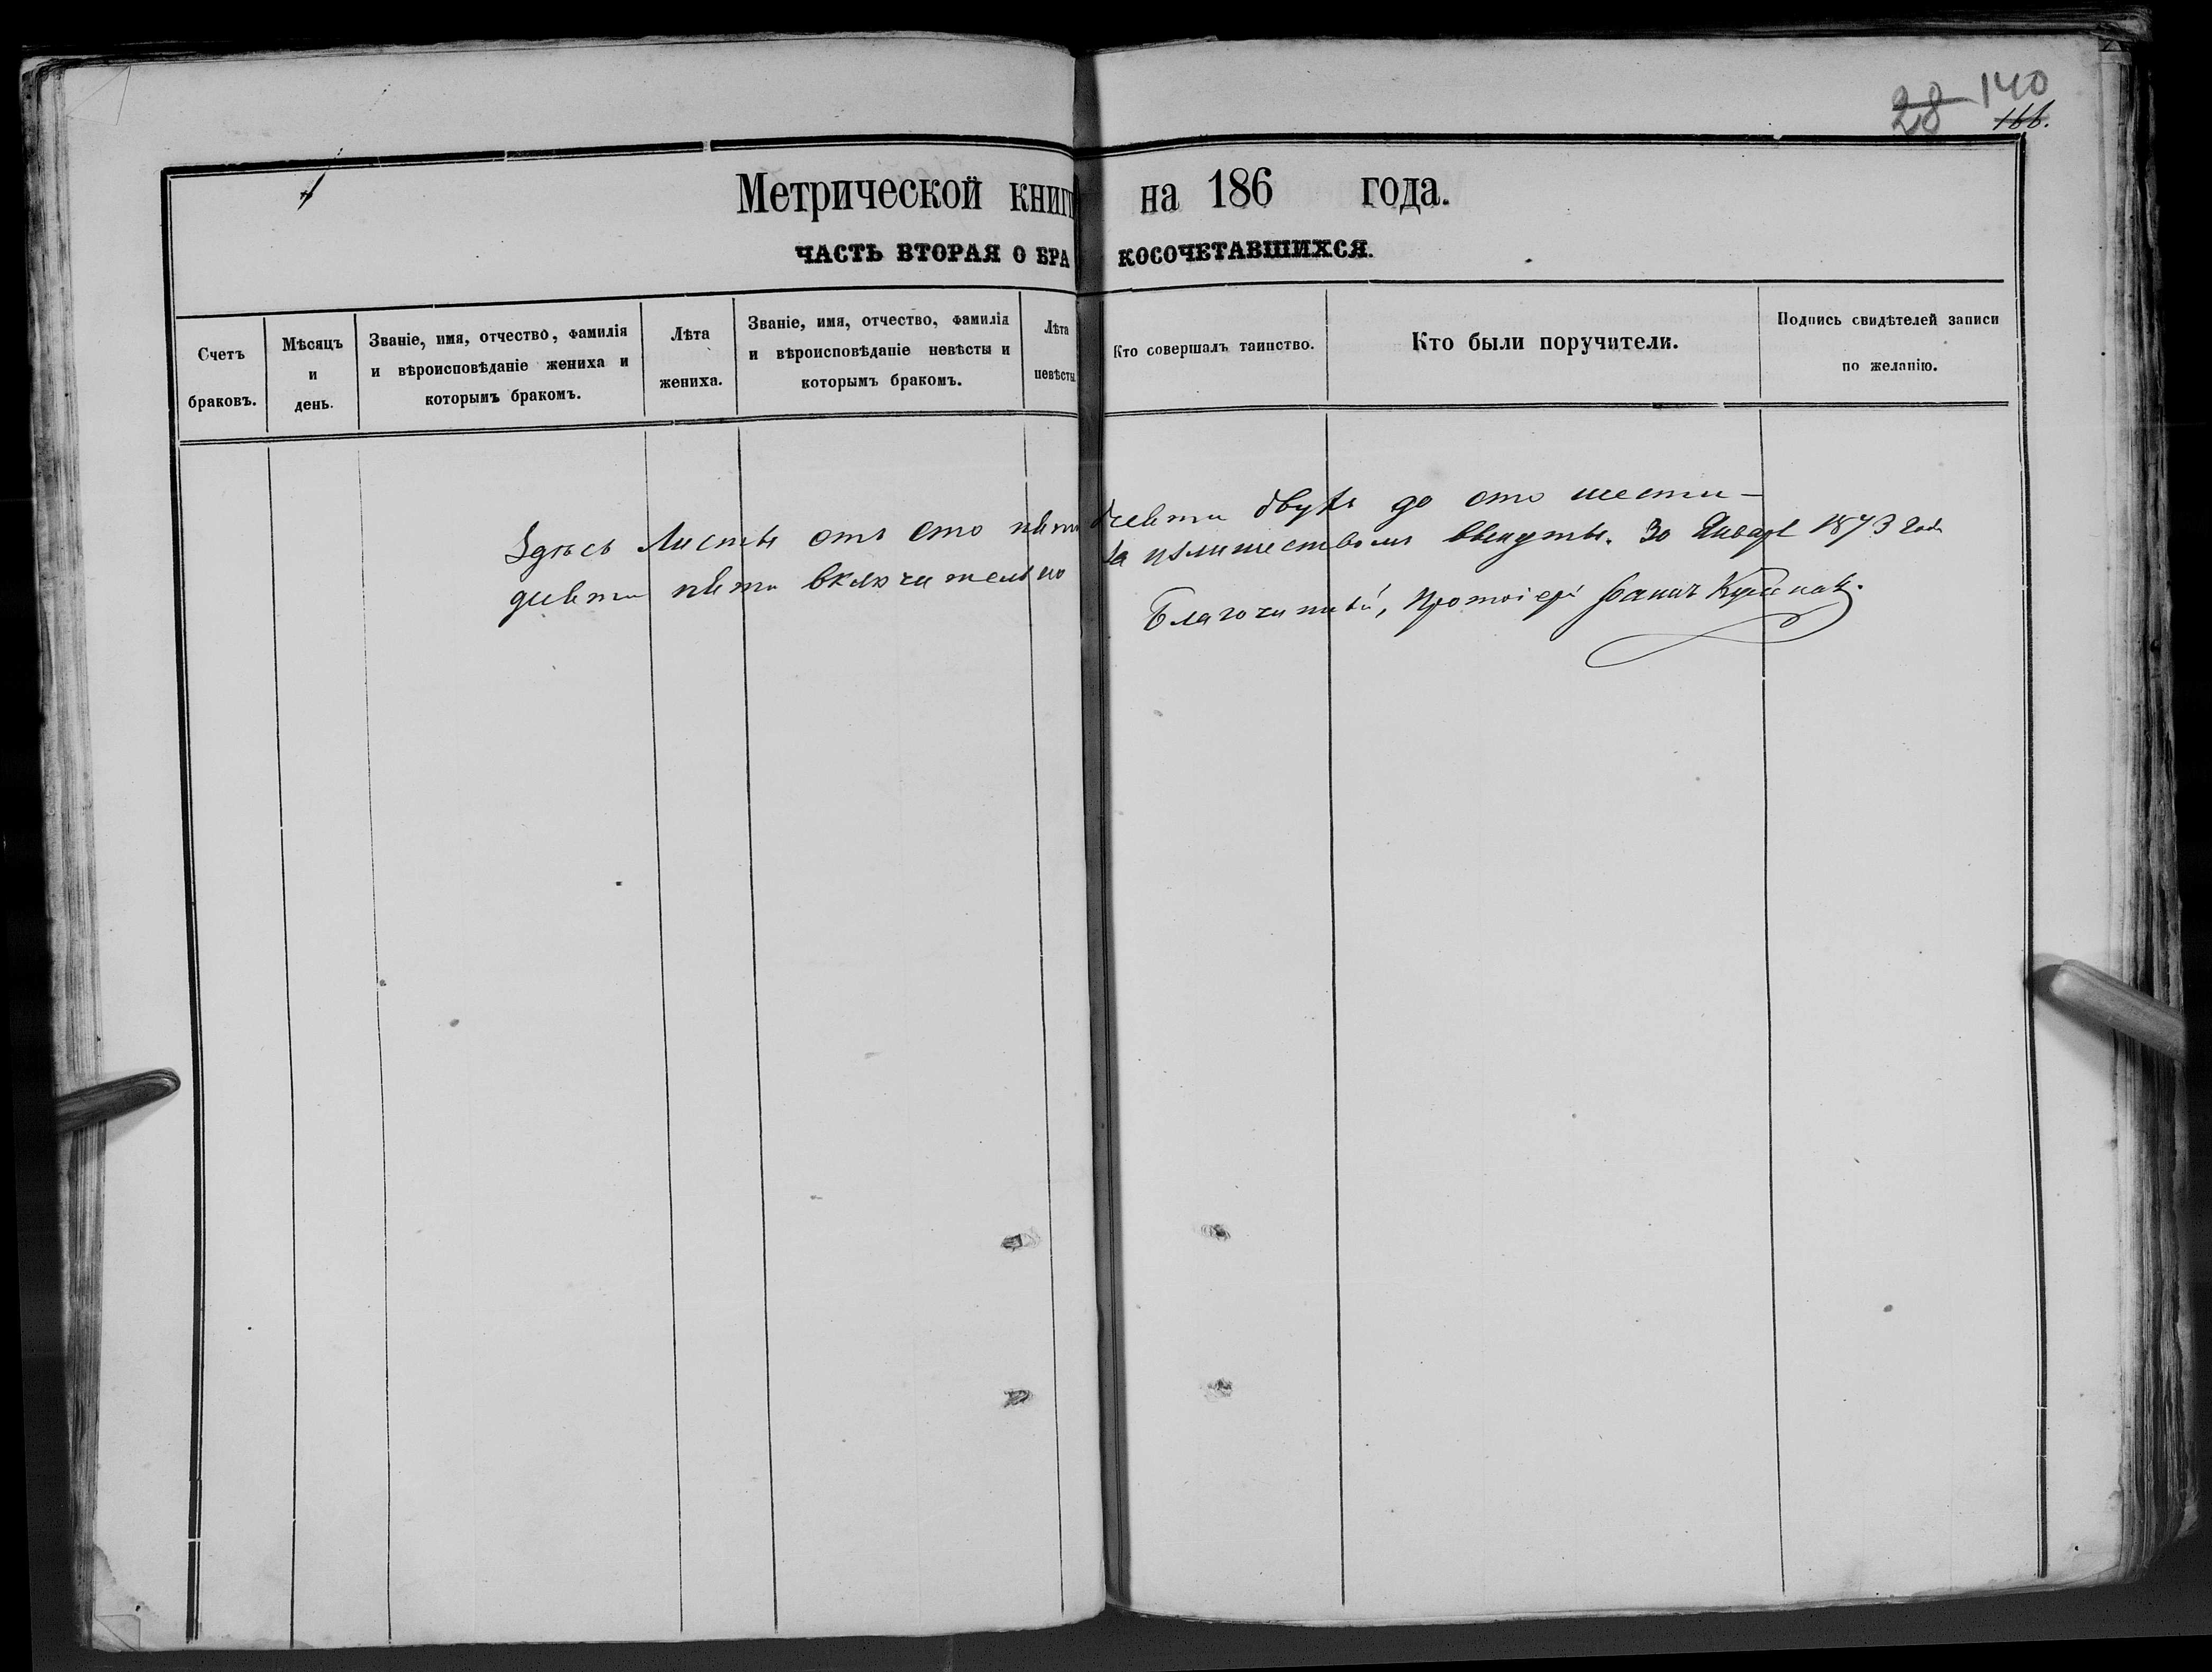 28 140
166.
Метрической книги на 186 года.
ЧАСТЬ ВТОРАЯ О БРАКОСОЧЕТАВШИХСЯ.
Счетъ браковъ.
Мѣсяцъ и день.
Званіе, имя, отчество, фамилія
и вѣроисповѣданіе жениха и
которымъ бракомъ.
Лѣта
жениха.
Званіе, имя, отчество, фамилія
и вѣроисповѣданіе невѣсты и
которымъ бракомъ.
Лѣта
невѣсты
Кто совершалъ таинство.
Кто были поручители.
Подпись свидѣтелей записи
по желанію.
Здѣсь Листы отъ сто пятидесяти двухъ до сто шести-
десяти пяти включительно за излишествомъ вынуты. 30 Января 1873 года
Благочинный, Протоіерей Іоаннъ